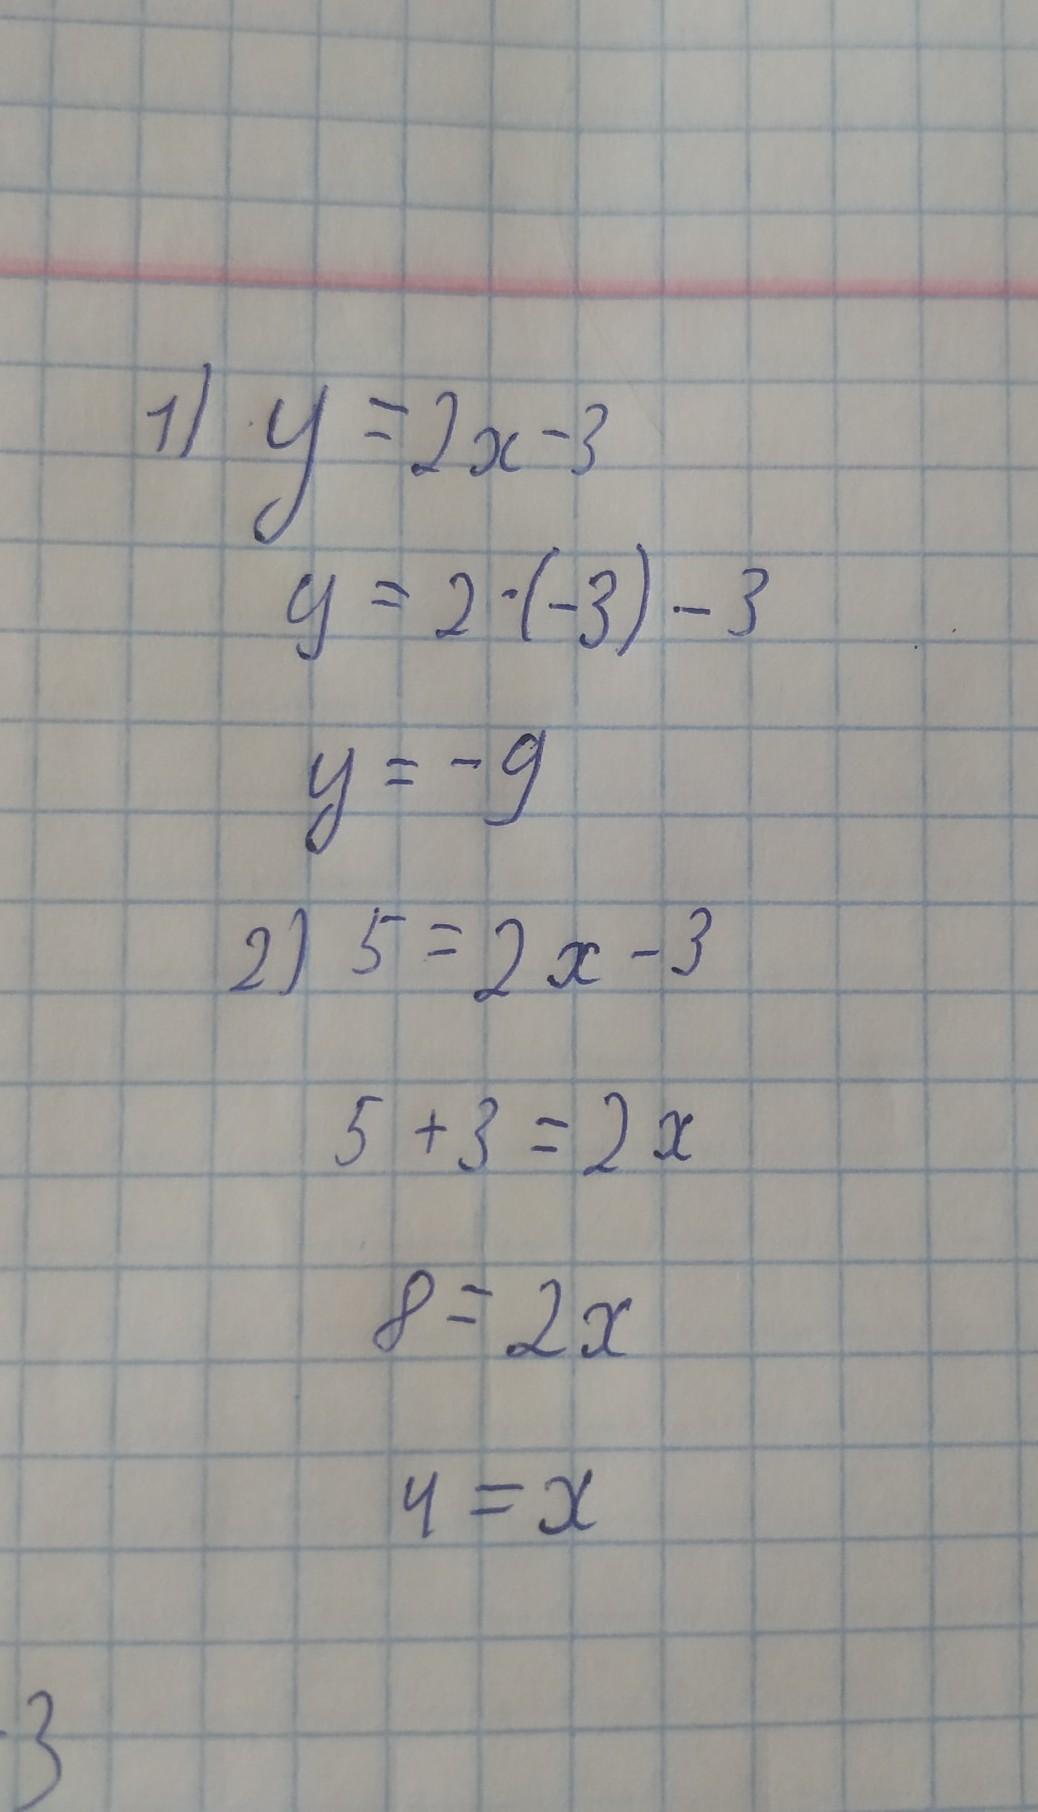 1) y = 2x - 3
y = 2 · (-3) - 3
y = -9
2) 5 = 2x - 3
5 + 3 = 2x
8 = 2x
4 = x
-3